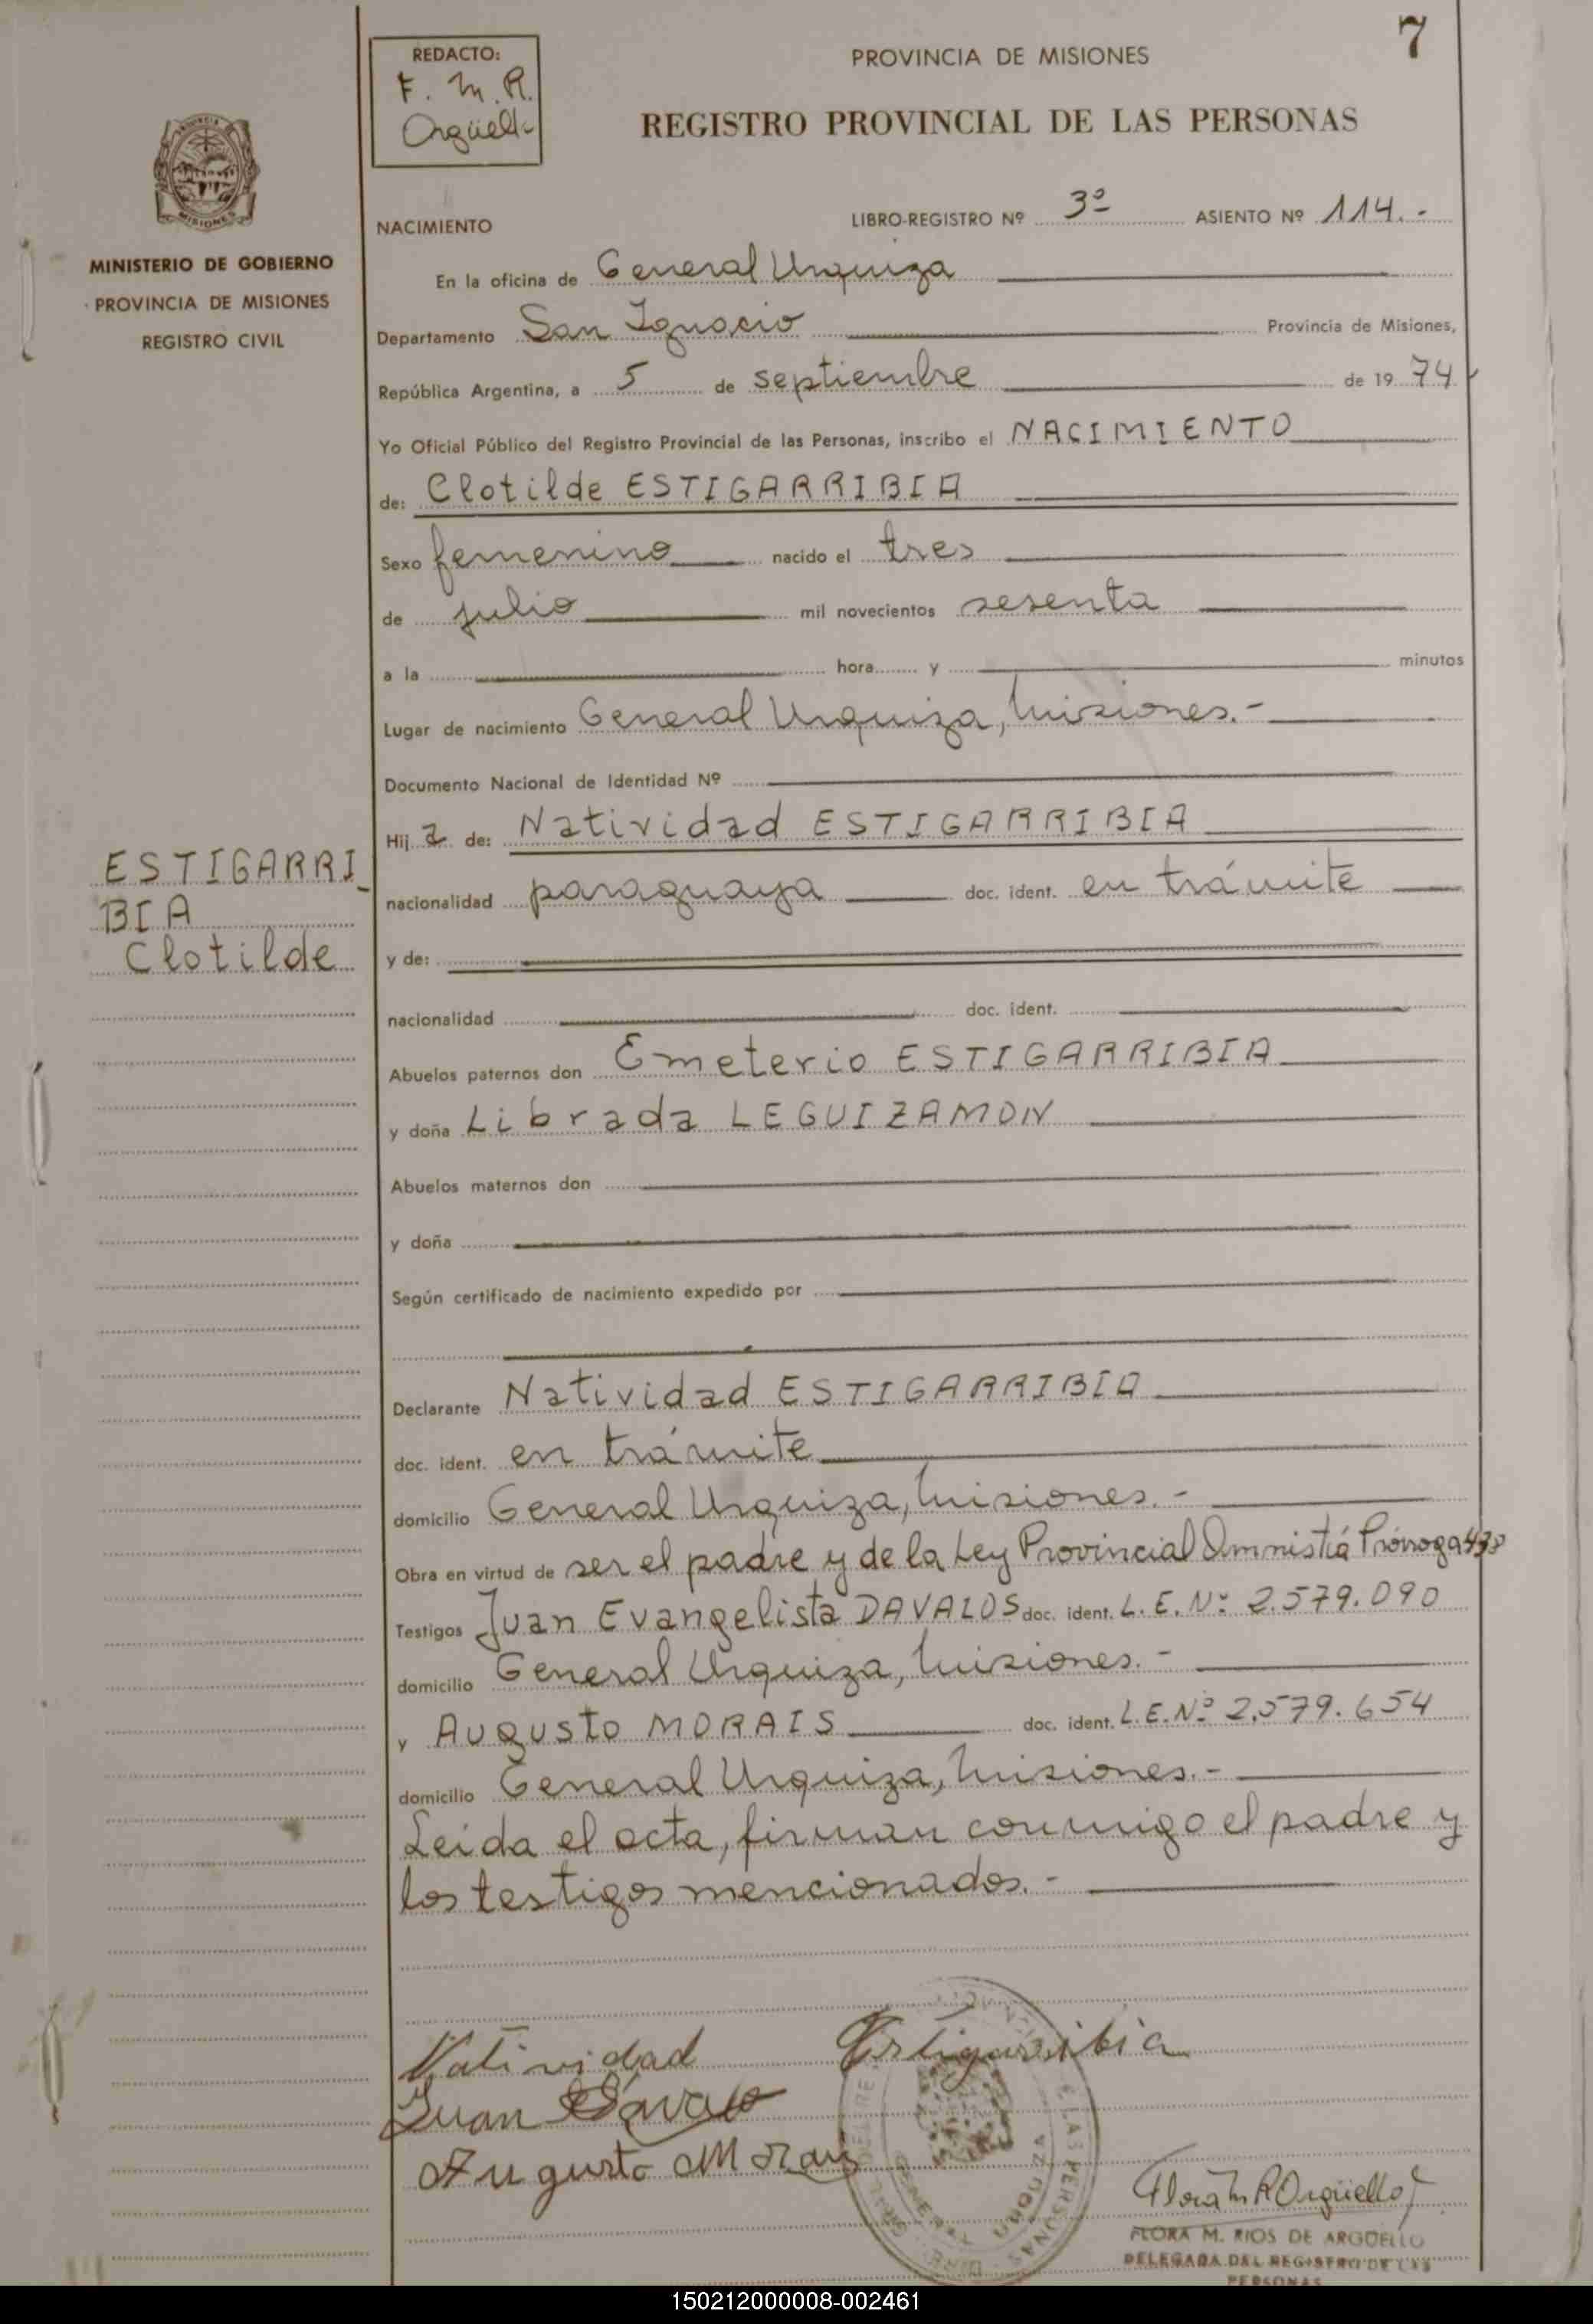 7
REDACTO:
F. M. R.
Argüello
PROVINCIA DE MISIONES
REGISTRO PROVINCIAL DE LAS PERSONAS
MISIONES
MINISTERIO DE GOBIERNO
PROVINCIA DE MISIONES
REGISTRO CIVIL
NACIMIENTO LIBRO-REGISTRO Nº 3º ASIENTO Nº 114.-
En la oficina de General Urquiza
Departamento San Ignacio Provincia de Misiones,
República Argentina, a 5 de septiembre de 1974
Yo Oficial Público del Registro Provincial de las Personas, inscribo el NACIMIENTO
de: Clotilde ESTIGARRIBIA
Sexo femenino nacido el tres
de julio mil novecientos sesenta
a la hora y minutos
Lugar de nacimiento General Urquiza, Misiones.-
Documento Nacional de Identidad Nº
Hija de: Natividad ESTIGARRIBIA
ESTIGARRI_
BIA
Clotilde
nacionalidad paraguaya doc. ident. en trámite
y de:
nacionalidad doc. ident.
Abuelos paternos don Emeterio ESTIGARRIBIA
y doña Librada LEGUIZAMON
Abuelos maternos don
y doña
Según certificado de nacimiento expedido por
Declarante Natividad ESTIGARRIBIA
doc. ident. en trámite
domicilio General Urquiza, Misiones.-
Obra en virtud de ser el padre y de la Ley Provincial Amnistiá Prórroga 438
Testigos Juan Evangelista DAVALOS doc. ident. L.E.Nº 2.579.090
domicilio General Urquiza, Misiones.-
y Augusto MORAIS doc. ident. L.E.Nº 2.579.654
domicilio General Urquiza, Misiones.-
Leida el acta, firman conmigo el padre y
los testigos mencionados.-
Natividad Estigarribia
Juan Davalo
Augusto Morais
Flora M R Argüello
FLORA M. RIOS DE ARGÜELLO
DELEGADA DEL REGISTRO DE LAS
PERSONAS
150212000008-002461